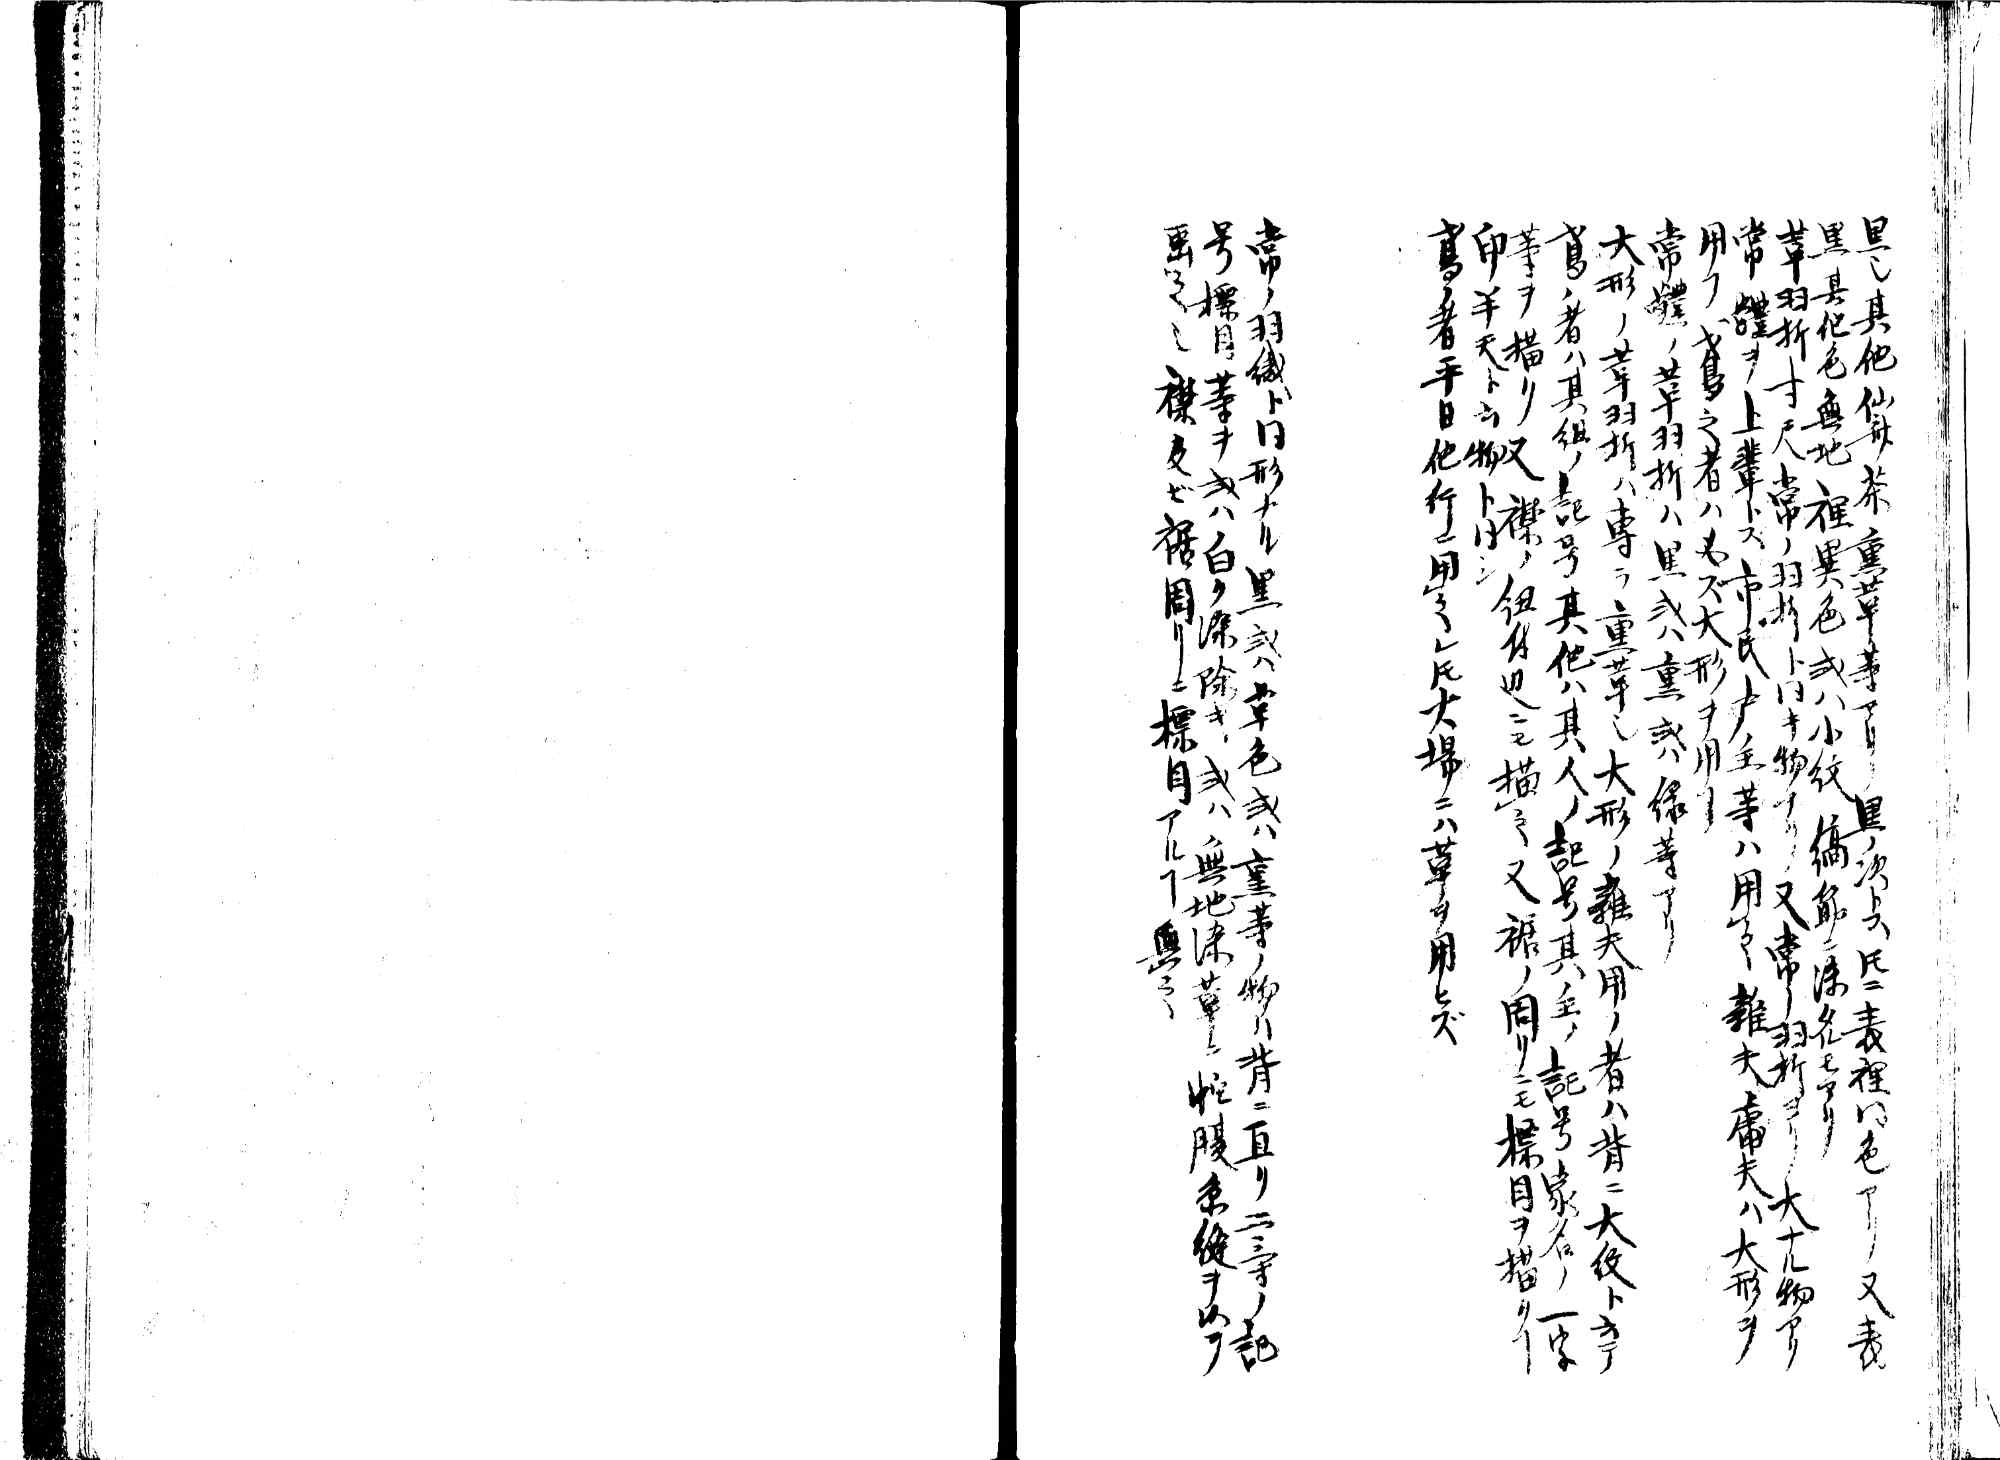 黒也其他仙斎茶熏革等アリ黒ノ次トス𪜈ニ表裡同色アリ又表
黒其他色無地裡異色或ハ小紋縞筋ニ染タルモアリ
革羽折寸尺常ノ羽折ト同キ物アリ又常ノ羽折ヨリ大ナル物アリ
常體ヲ上輩トス市民戸主等ハ用之雑夫鳶夫ハ大形ヲ
用フ鳶之者ハ必ズ大形ヲ用フ
常體ノ革羽折ハ黒或ハ熏或ハ緑等アリ
大形ノ革羽折ハ専ラ熏革也大形ノ雑夫用ノ者ハ背ニ大紋ト云テ
鳶ノ者ハ其組ノ記号其他ハ其人ノ記号其主ノ記号家名ノ一字
等ヲ描リ又襟ノ紐付辺ニモ描之又裾ノ周リニモ標目ヲ描リ
印半天ト云物ト同シ
鳶ノ者平日他行ニ用之レ𪜈大場ニハ革ヲ用ヒズ
常ノ羽織ト同形ナル黒或ハ革色或ハ熏等ノ物ハ背ニ直リ二三寸ノ記
号標目等ヲ或ハ白ク染除キ或ハ無地染革ニ 糸縫ヲ以テ
画之也襟及ビ裾周リニ標目アルヿ無之